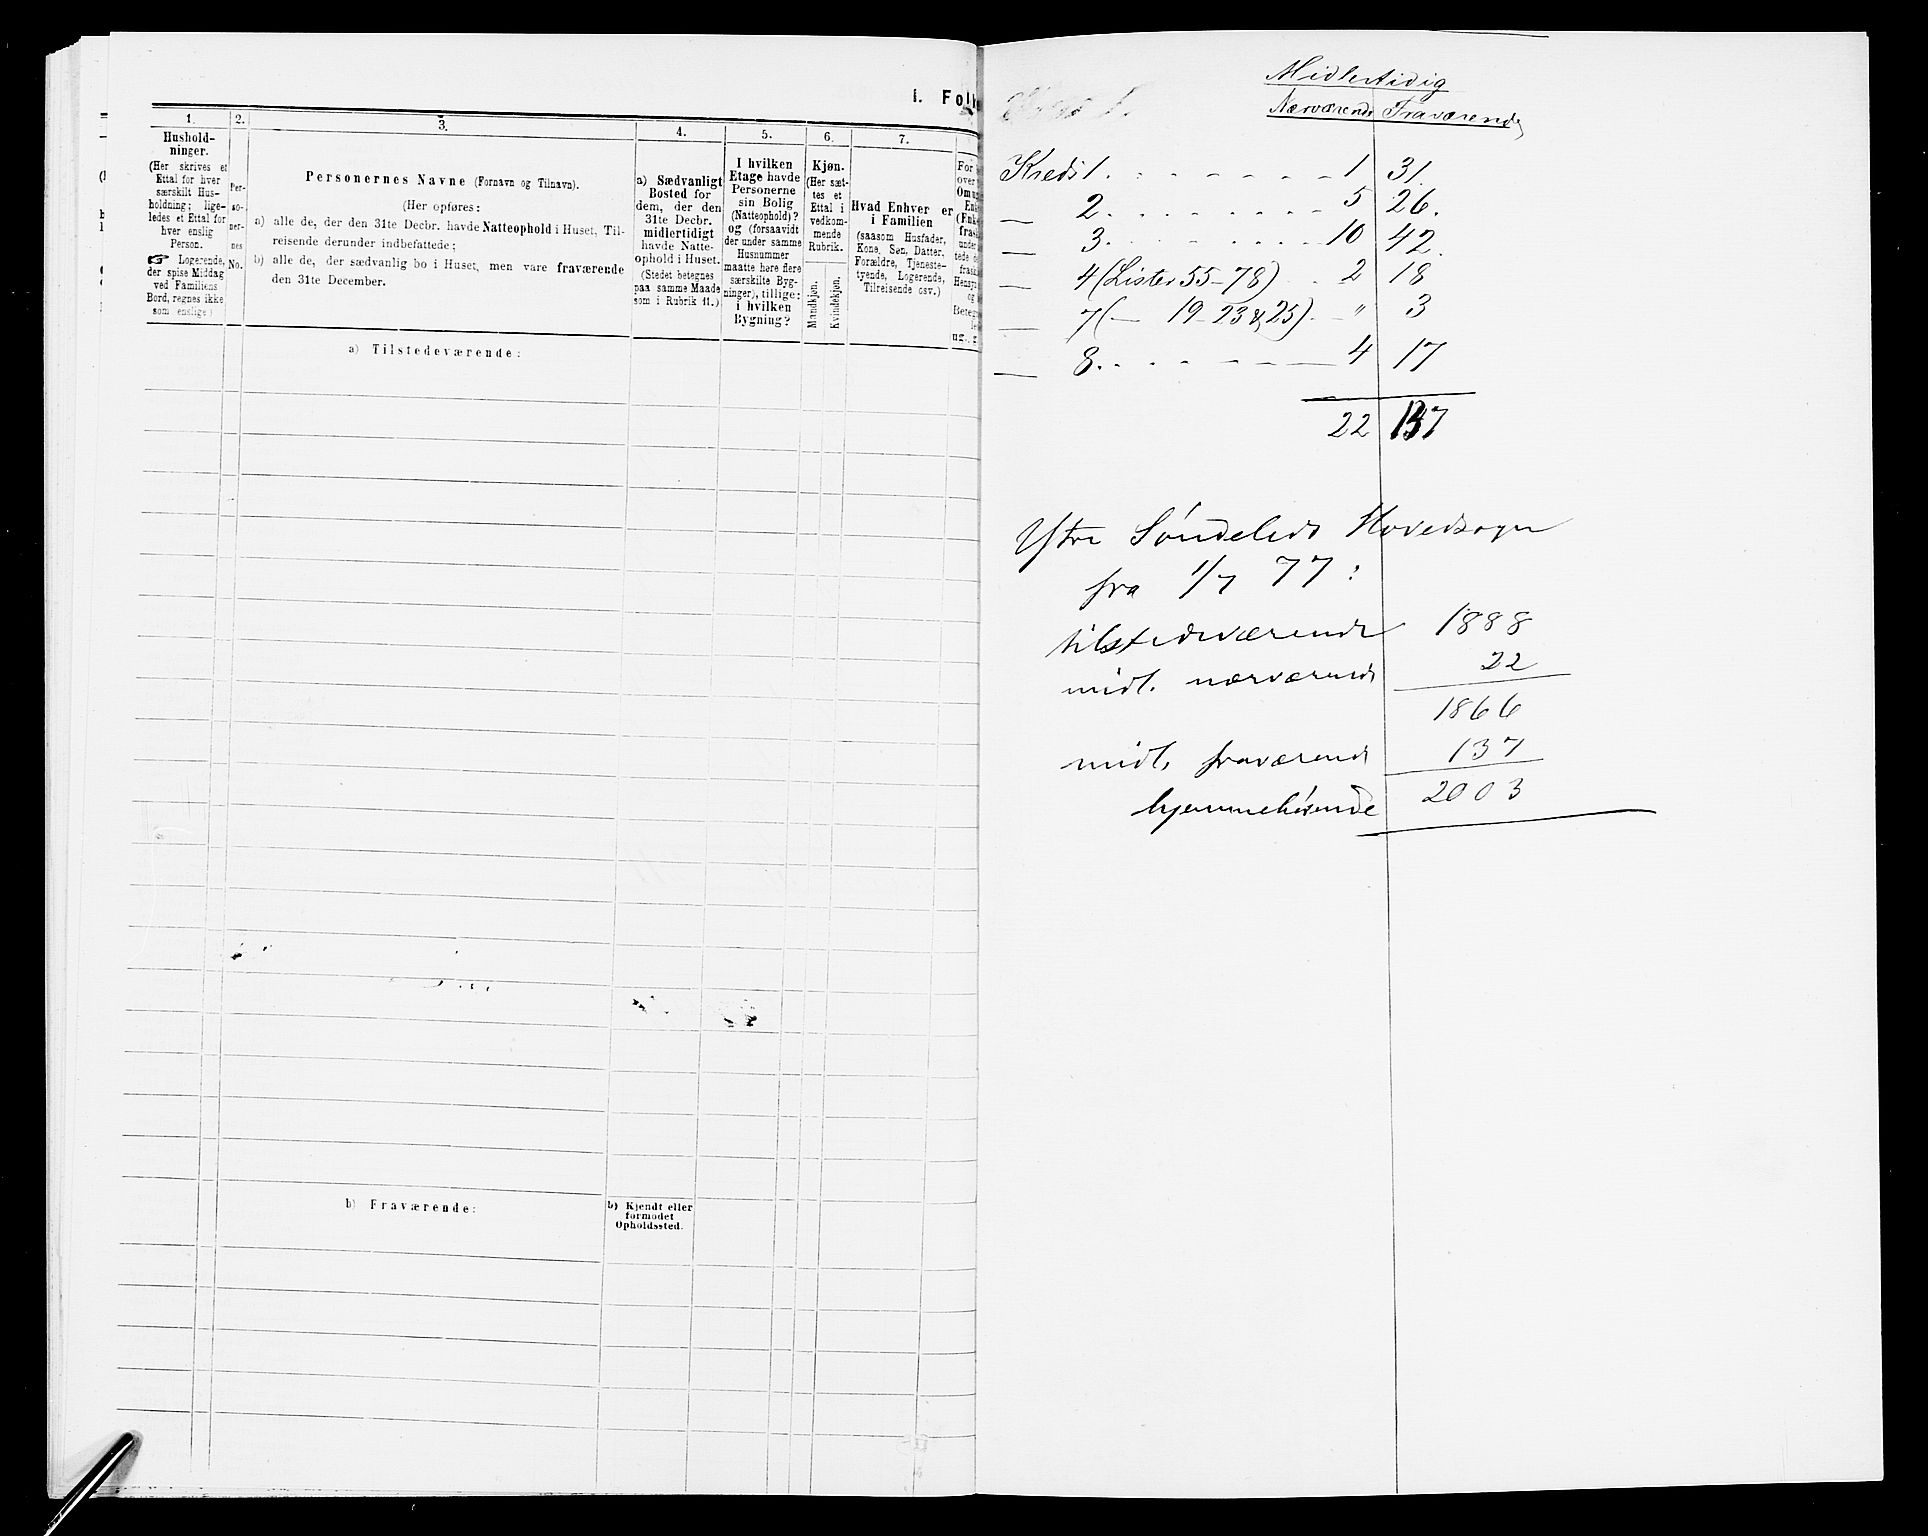 I. Fol
1.
Hushold-
ninger.
(Her skrives et
Ettal for hver
særskilt Hus-
holdning; lige-
ledes et Ettal for
hver enslig
Person.
☞ Logerende,
der spise Middag
ved Familiens
Bord, regnes ikke
som enslige.)
2.
Per-
so-
ner-
nes
No.
3.
Personernes Navne (Fornavn og Tilnavn).
(Her opføres:
a) alle de, der den 31te Decbr. havde Natteophold i Huset, Til-
reisende derunder indbefattede;
b) alle de, der sædvanlig bo i Huset, men vare fraværende
den 31te December.
4.
a) Sædvanligt
Bosted for
dem, der den
31te Decbr.
midlertidigt
havde Natte-
ophold i Huset.
(Stedet betegnes
paa samme Maade
som i Rubrik 11.)
5.
I hvilken
Etage havde
Personerne
sin Bolig
(Natteophold)?
og (forsaavidt
der under samme
Husnummer
maatte høre flere
særskilte Byg-
ninger), tillige:
i hvilken
Bygning?
6.
Kjøn.
(Her sæt-
tes et
Ettal i
vedkom-
mende
Rubrik.
Mandkjøn.
Kvindekjøn.
7.
Hvad Enhver er
i Familien
(saasom Husfader,
Kone, Søn, Datter,
Forældre, Tjeneste-
tyende, Logerende,
Tilreisende osv.)
For
over
Om
(Enk
a) Tilstedeværende:
b) Fraværende:
b) Kjendt eller
formodet
Opholdssted.
Midlertidig
Nærværende Fraværende
Kreds 1. - - - - - - - 1 31.
— 2. - - - - - - - 5 26.
— 3. - - - - - - 10 42.
— 4 (Lister 55-78) - - 2 18
— 7 (— 19-23 & 25) - " 3
— 8. - - - - - - 4 17
22 137
Ytre Søndeleds Hovedsogn
fra 1/7 77:
tilstedeværende 1888
midl. nærværende 22
1866
midl. fraværende 137
hjemmehørende 2003